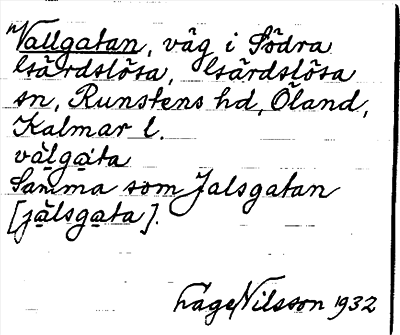 Vallgatan, väg i Södra
Gärdslösa, Gärdslösa
sn, Runstens hd, Öland,
Kalmar l.
vàlga̤ta
Samma som Jalsgatan
[jàlsga̤ta].
Åge Nilsson 1932